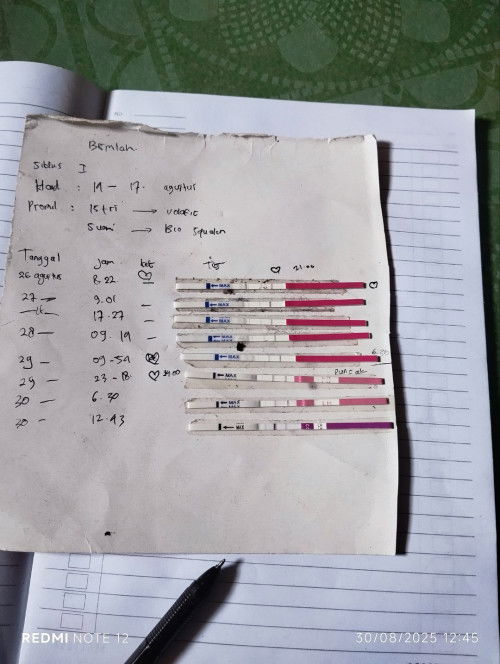 Bismilah
Siklus I
Haid : 14 - 17 agustus
Promil : Istri → volafit
Suami → Bio Squalen
Tanggal jam
26 agustus 8.22
27 - 9.01 -
17.27 -
28 - 09.19 -
29 - 09-54
29 - 23-18
30 - 6.30
30 - 12.43
21.00
← MAX
← MAX
← MAX
← MAX
← MAX
← MAX
Puncak
← MAX
← MAX
REDMI NOTE 12
30/08/2025 12:45